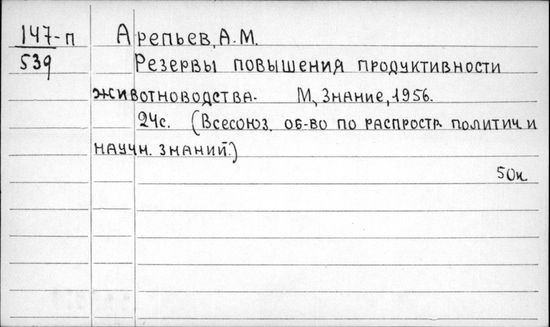 147-п Арепьев, А.М.
539 Резервы повышения продуктивности
животноводства. М, Знание, 1956.
24с. (Всесоюз. об-во по распростр. политич. и
научн. знаний.)
50к